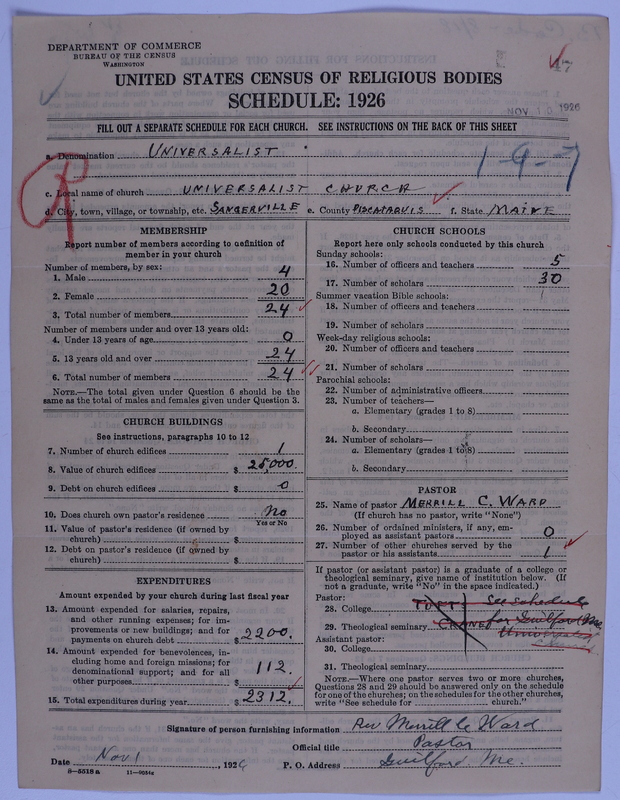 DEPARTMENT OF COMMERCE
BUREAU OF THE CENSUS
WASHINGTON
UNITED STATES CENSUS OF RELIGIOUS BODIES
SCHEDULE: 1926
NOV 10 1926
FILL OUT A SEPARATE SCHEDULE FOR EACH CHURCH. SEE INSTRUCTIONS ON THE BACK OF THIS SHEET
a. Denomination UNIVERSALIST
1-9-7
c. Local name of church UNIVERSALIST CHURCH
d. City, town, village, or township, etc. SANGERVILLE e. County PISCATAQUIS f. State MAINE
MEMBERSHIP
Report number of members according to definition of
member in your church
Number of members, by sex:
1. Male 4
2. Female 20
3. Total number of members 24
Number of members under and over 13 years old:
4. Under 13 years of age 0
5. 13 years old and over 24
6. Total number of members 24
NOTE.—The total given under Question 6 should be
same as the total of males and females given under Question 3.
CHURCH BUILDINGS
See instructions, paragraphs 10 to 12
7. Number of church edifices 1
8. Value of church edifices $ 25,000.
9. Debt on church edifices $ 0
10. Does church own pastor's residence No
Yes or No
11. Value of pastor's residence (if owned by
church) $
12. Debt on pastor's residence (if owned by
church) $
EXPENDITURES
Amount expended by your church during last fiscal year
13. Amount expended for salaries, repairs,
and other running expenses; for im-
provements or new buildings; and for
payments on church debt $ 2200.
14. Amount expended for benevolences, in-
cluding home and foreign missions; for
denominational support; and for all
other purposes $ 112.
15. Total expenditures during year $ 2312.
CHURCH SCHOOLS
Report here only schools conducted by this church
Sunday schools:
16. Number of officers and teachers 5
17. Number of scholars 30
Summer vacation Bible schools:
18. Number of officers and teachers
19. Number of scholars
Week-day religious schools:
20. Number of officers and teachers
21. Number of scholars
Parochial schools:
22. Number of administrative officers
23. Number of teachers—
a. Elementary (grades 1 to 8)
b. Secondary
24. Number of scholars—
a. Elementary (grades 1 to 8)
b. Secondary
PASTOR
25. Name of pastor MERRILL C. WARD
(If church has no pastor, write "None")
26. Number of ordained ministers, if any, em-
ployed as assistant pastors 0
27. Number of other churches served by the
pastor or his assistants 1
If pastor (or assistant pastor) is a graduate of a college or
theological seminary, give name of institution below. (If
not a graduate, write "No" in the space indicated.)
Pastor:
28. College TUFTS See Schedule
29. Theological seminary CRANE for Guilford Me.
Universalist
Church
Assistant pastor:
30. College
31. Theological seminary
NOTE.—Where one pastor serves two or more churches,
Questions 28 and 29 should be answered only on the schedule
for one of the churches; on the schedules for the other churches,
write "See schedule for church."
Signature of person furnishing information Rev Merrill C Ward
Official title Pastor
Date Nov 1, 1926 P. O. Address Guilford Me.
8—5518 a 11—9034c